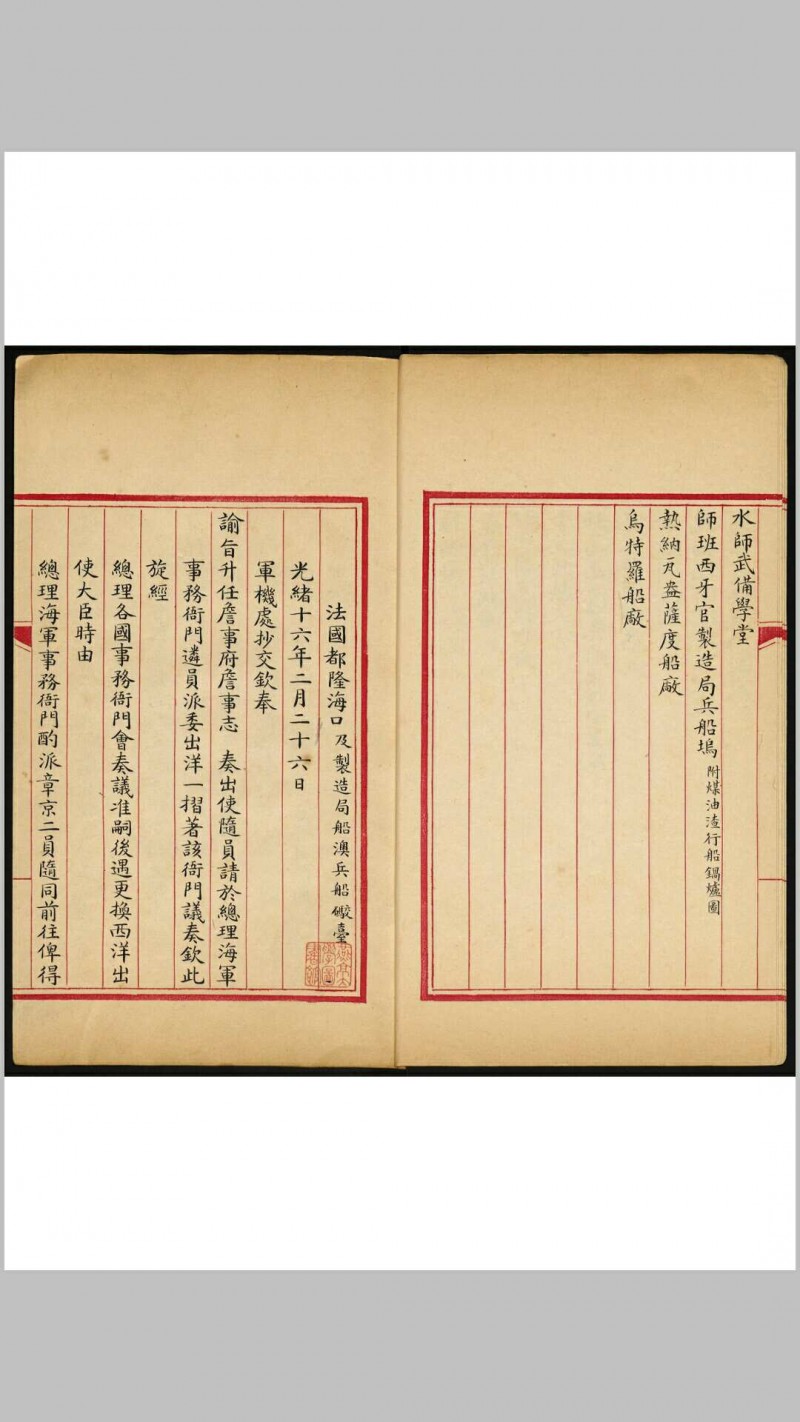 水師武備學堂
師班西牙官製造局兵船塢 附煤油渣行船鍋爐圖
熱納瓦盎薩度船廠
烏特羅船廠
法國都隆海口 及製造局船澳兵船礮臺
光緒十六年二月二十六日
軍機處抄交欽奉
諭旨升任詹事府詹事志 奏出使隨員請於總理海軍
事務衙門遴員派委出洋一摺著該衙門議奏欽此
旋經
總理各國事務衙門會奏議准嗣後遇更換西洋出
使大臣時由
總理海軍事務衙門酌派章京二員隨同前往俾得
燕京大學圖書館